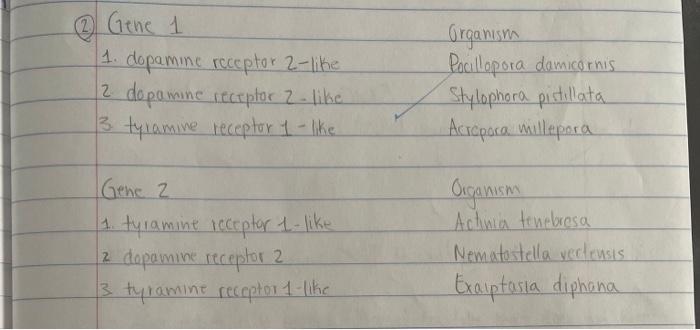 ② Gene 1 Organism
1. dopamine receptor 2-like Pocillopora damicornis
2 dopamine receptor 2-like Stylophora pistillata
3 tyramine receptor 1-like Acropora millepora
Gene 2 Organism
1. tyramine receptor 1-like Actinia tenebrosa
2 dopamine receptor 2 Nematostella vectensis
3 tyramine receptor 1-like Exaiptasia diphana